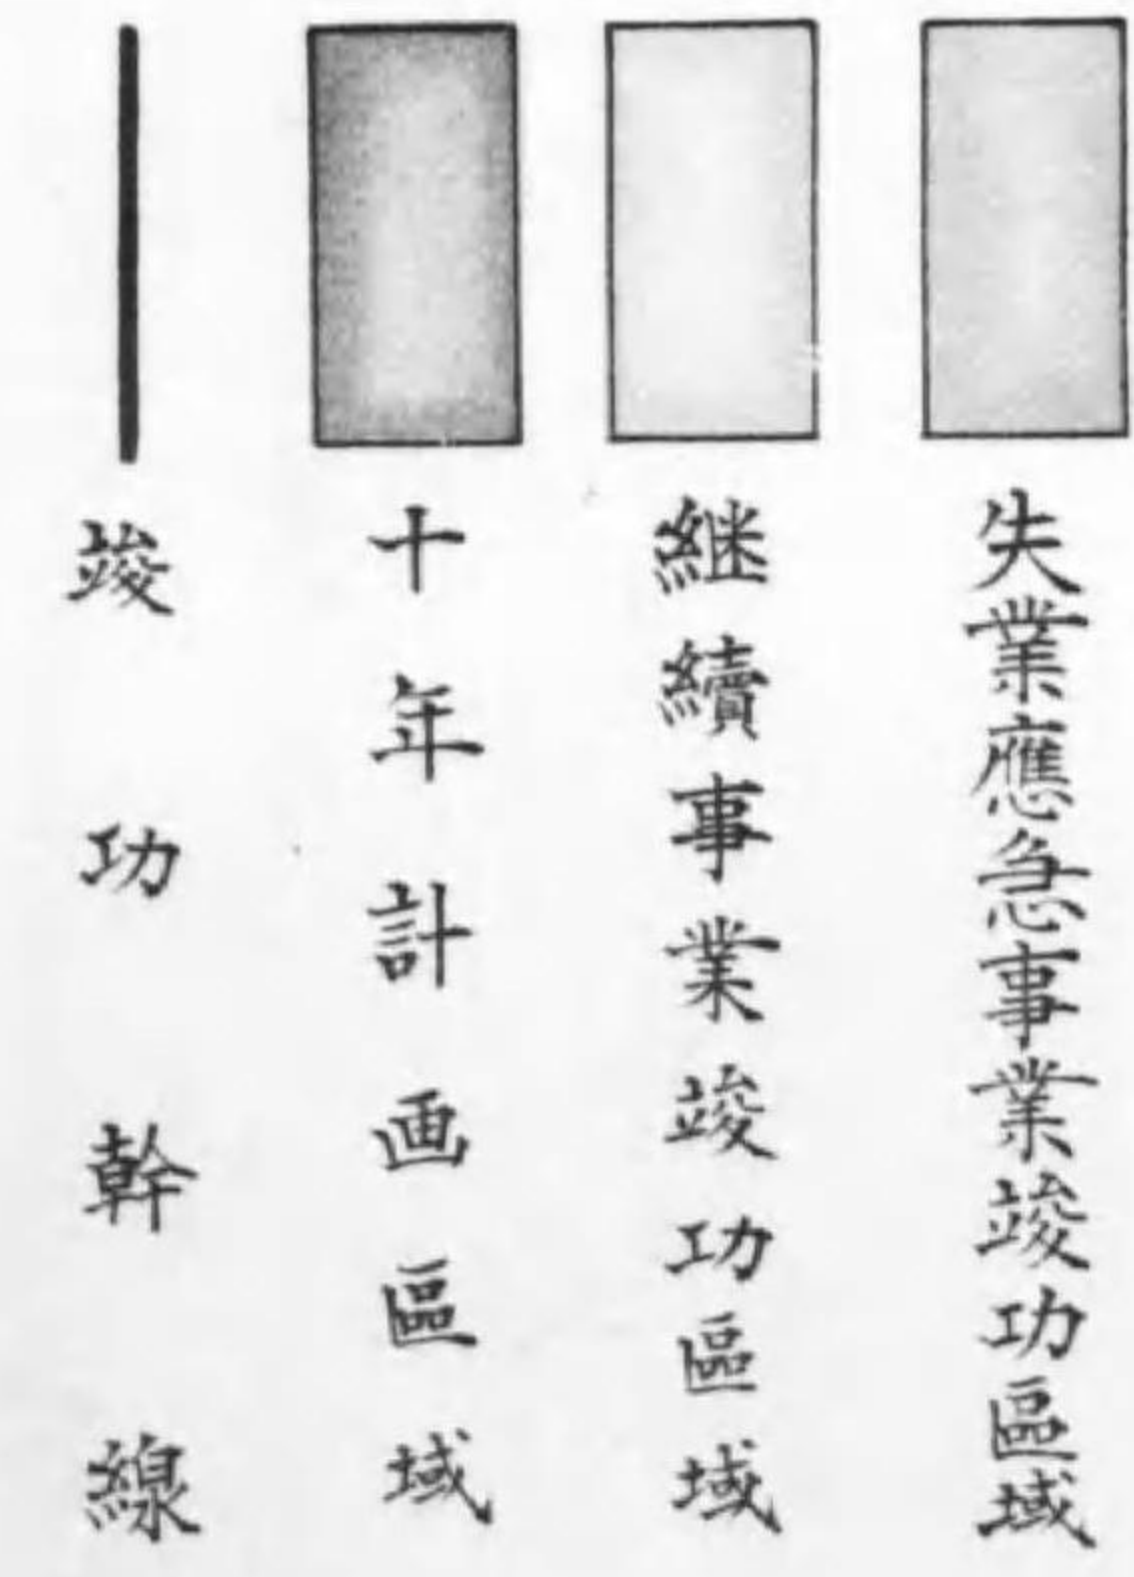 失業應急事業竣功區域
継續事業竣功區域
十年計画區域
竣功幹線